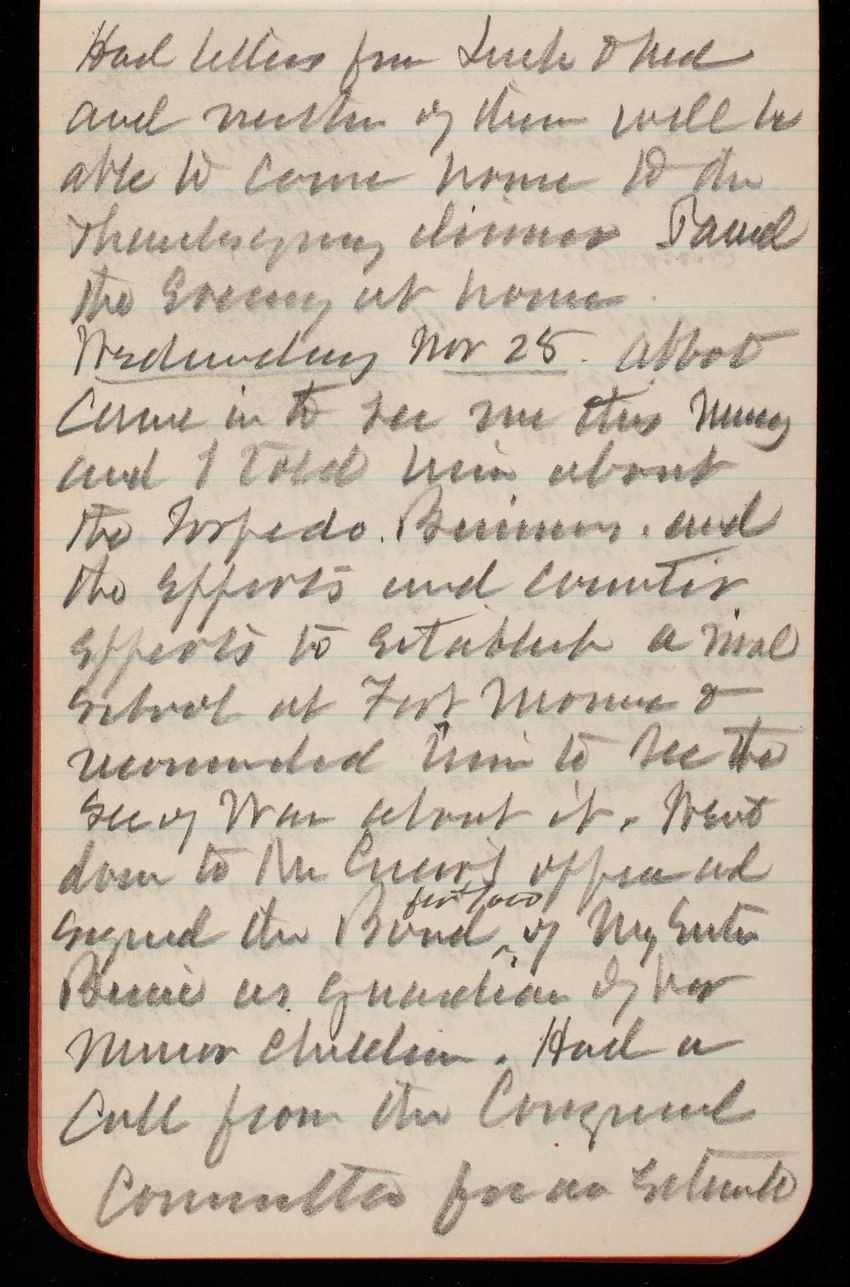 Had letters from Luck & Ned
and neither of them will be
able to come home to the
Thanksgiving dinner Passed
the Evening at home
Wednesday Nov 28. Abbot
came in to see me this morning
and I told him about
the Torpedo. Business. and
the efforts and counter
efforts to establish a rival
school at Fort Monroe &
recommended him to see the
Sec of War about it. Went
down to the offices and
signed the Bond of My Sister
for $ 1000
Bessie as guardian of her
minor children. Had a
Call from the Congressional
Committee for an Estimate